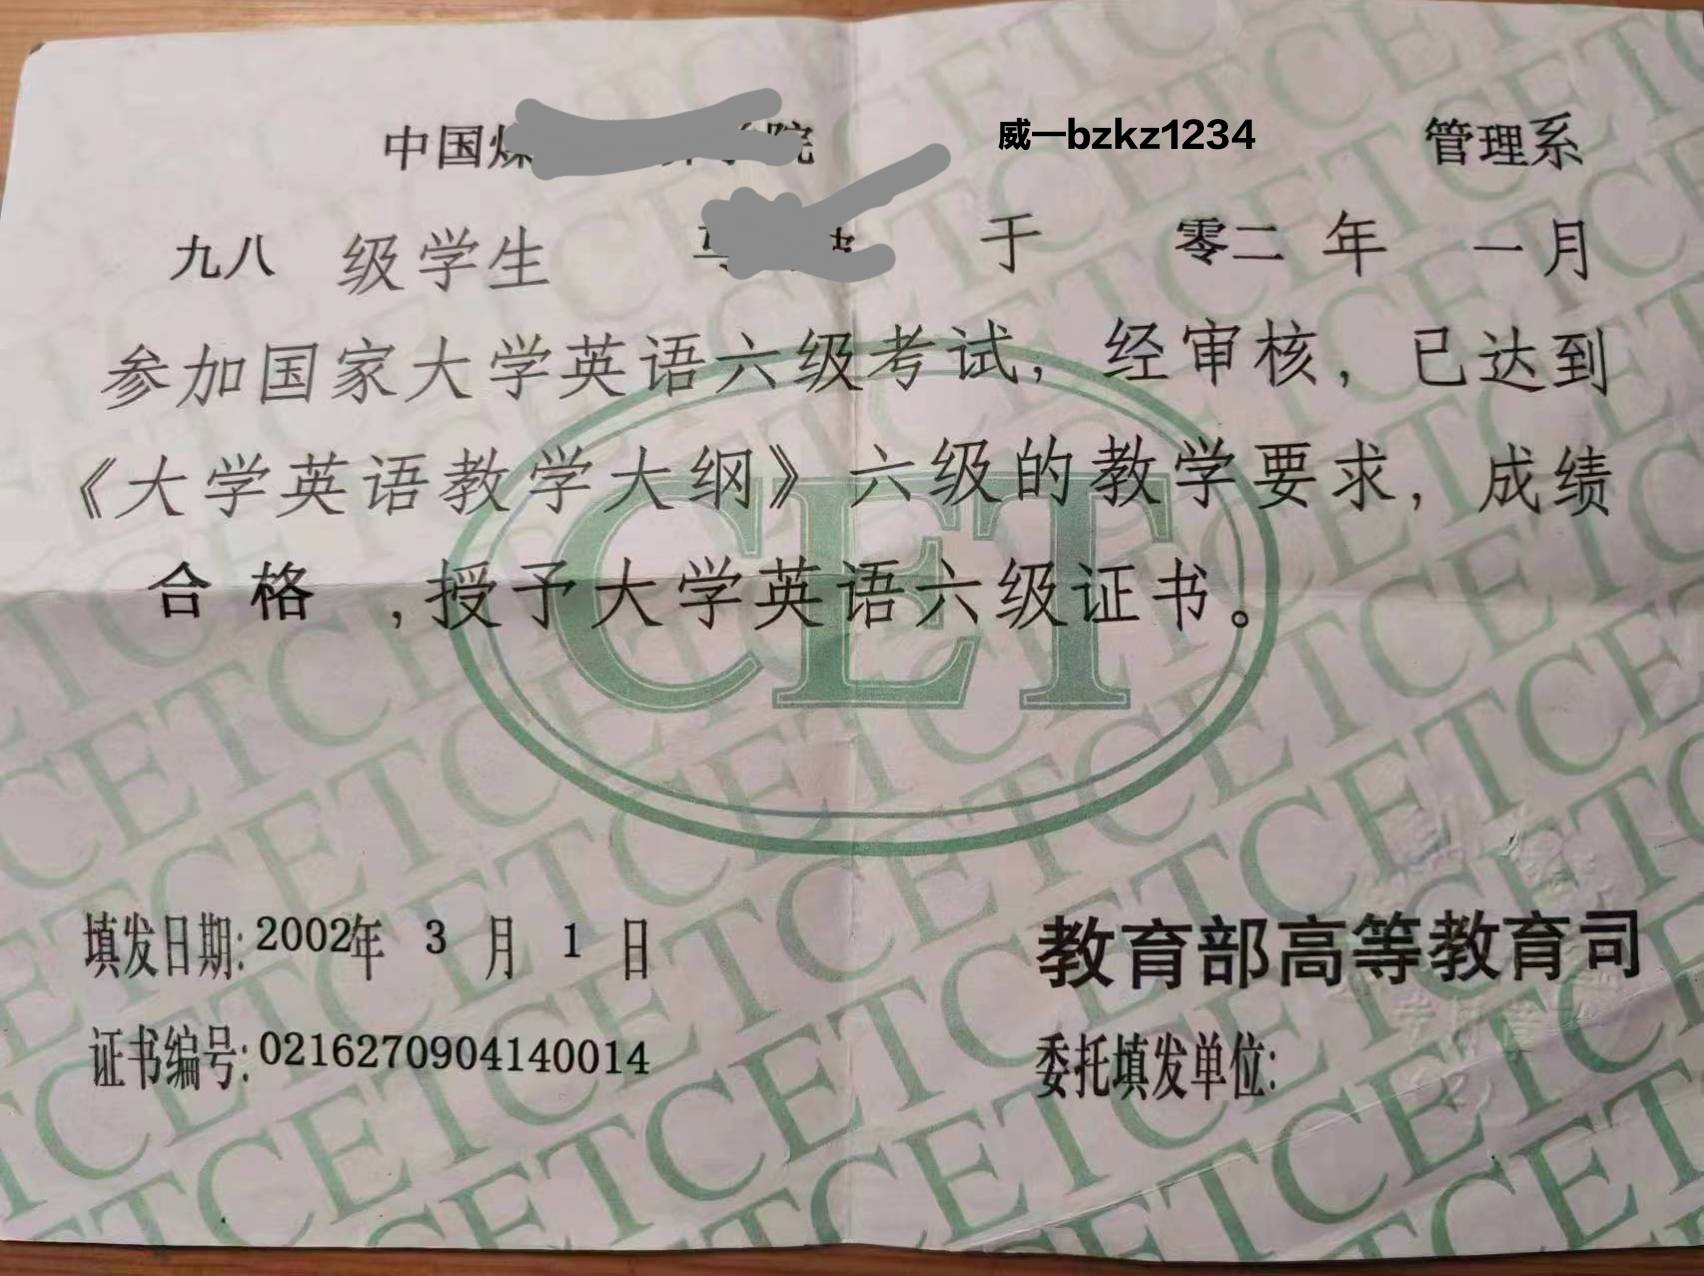 中国 院 威一bzkz1234 管理系
九八 级学生 于 零二 年 一月
参加国家大学英语六级考试，经审核，已达到
《大学英语教学大纲》六级的教学要求，成绩
合格，授予大学英语六级证书。
CET
填发日期:2002年 3 月 1 日
教育部高等教育司
证书编号:0216270904140014
委托填发单位: